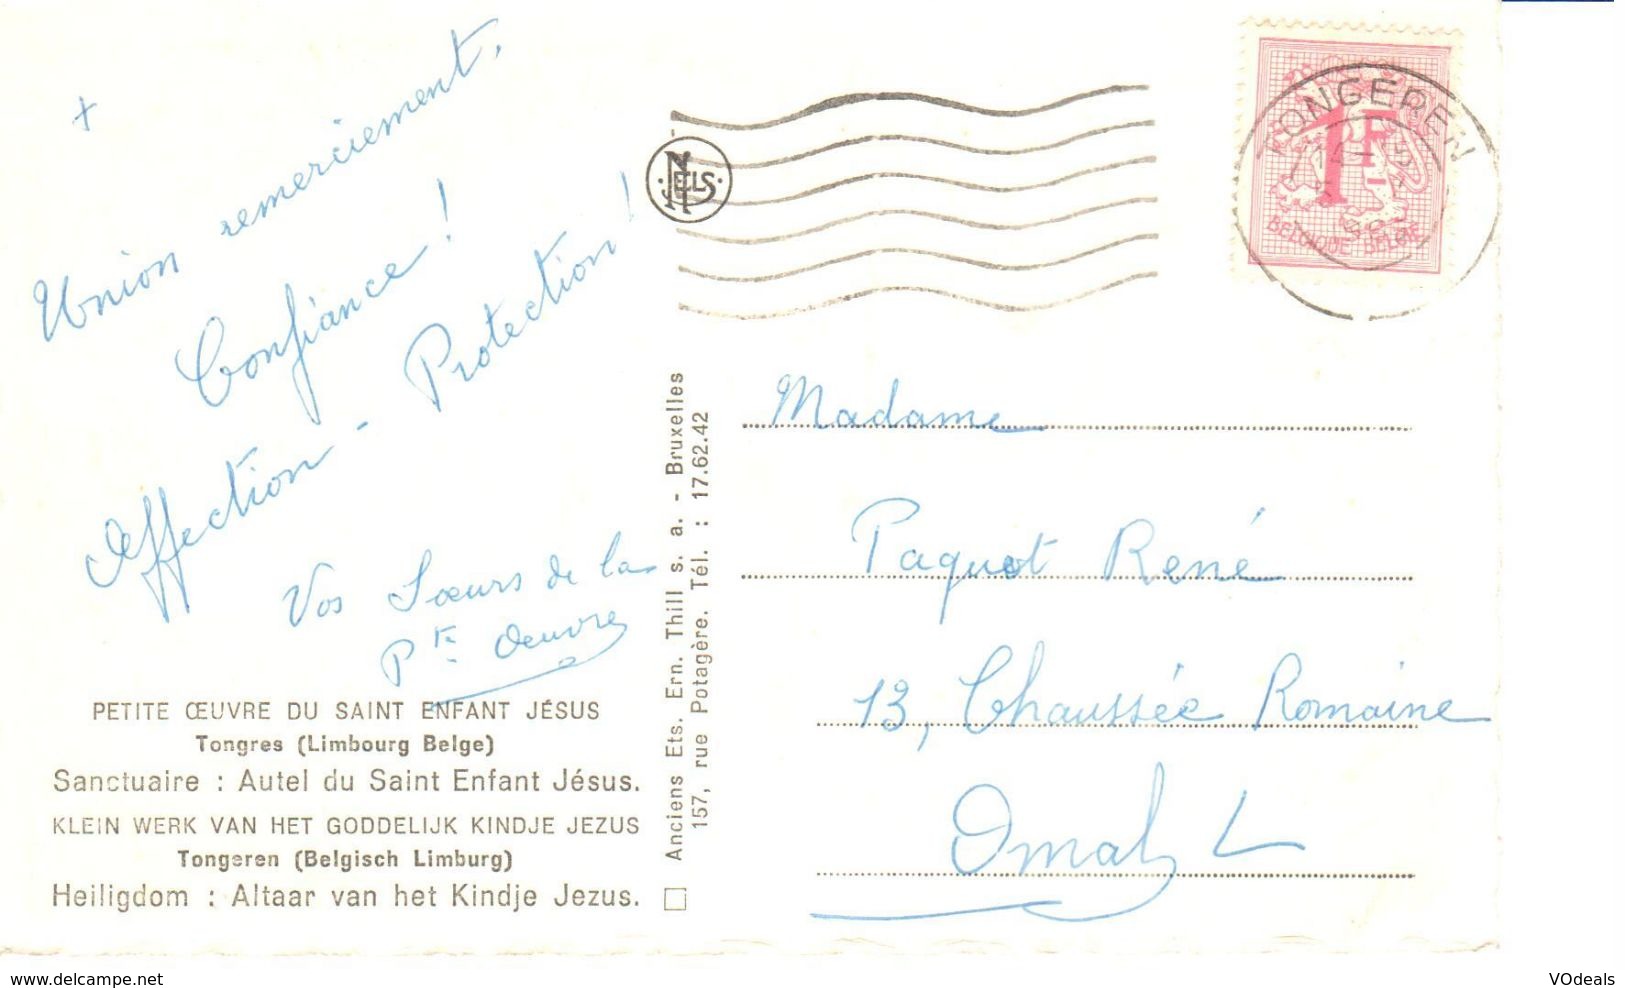 +
Union remerciement.
Confiance !
Affection - Protection !
Vos Sœurs de la
Pte Oeuvre
PETITE ŒUVRE DU SAINT ENFANT JÉSUS
Tongres (Limbourg Belge)
Sanctuaire : Autel du Saint Enfant Jésus.
KLEIN WERK VAN HET GODDELIJK KINDJE JEZUS
Tongeren (Belgisch Limburg)
Heiligdom : Altaar van het Kindje Jezus.
NELS
Anciens Ets. Ern. Thill s. a. - Bruxelles
157, rue Potagère. Tél. : 17.62.42
TONGEREN
1F
BELGIQUE BELGIE
Madame
Paquot René
13, Chaussée Romaine
Omal
www.delcampe.net
VOdeals